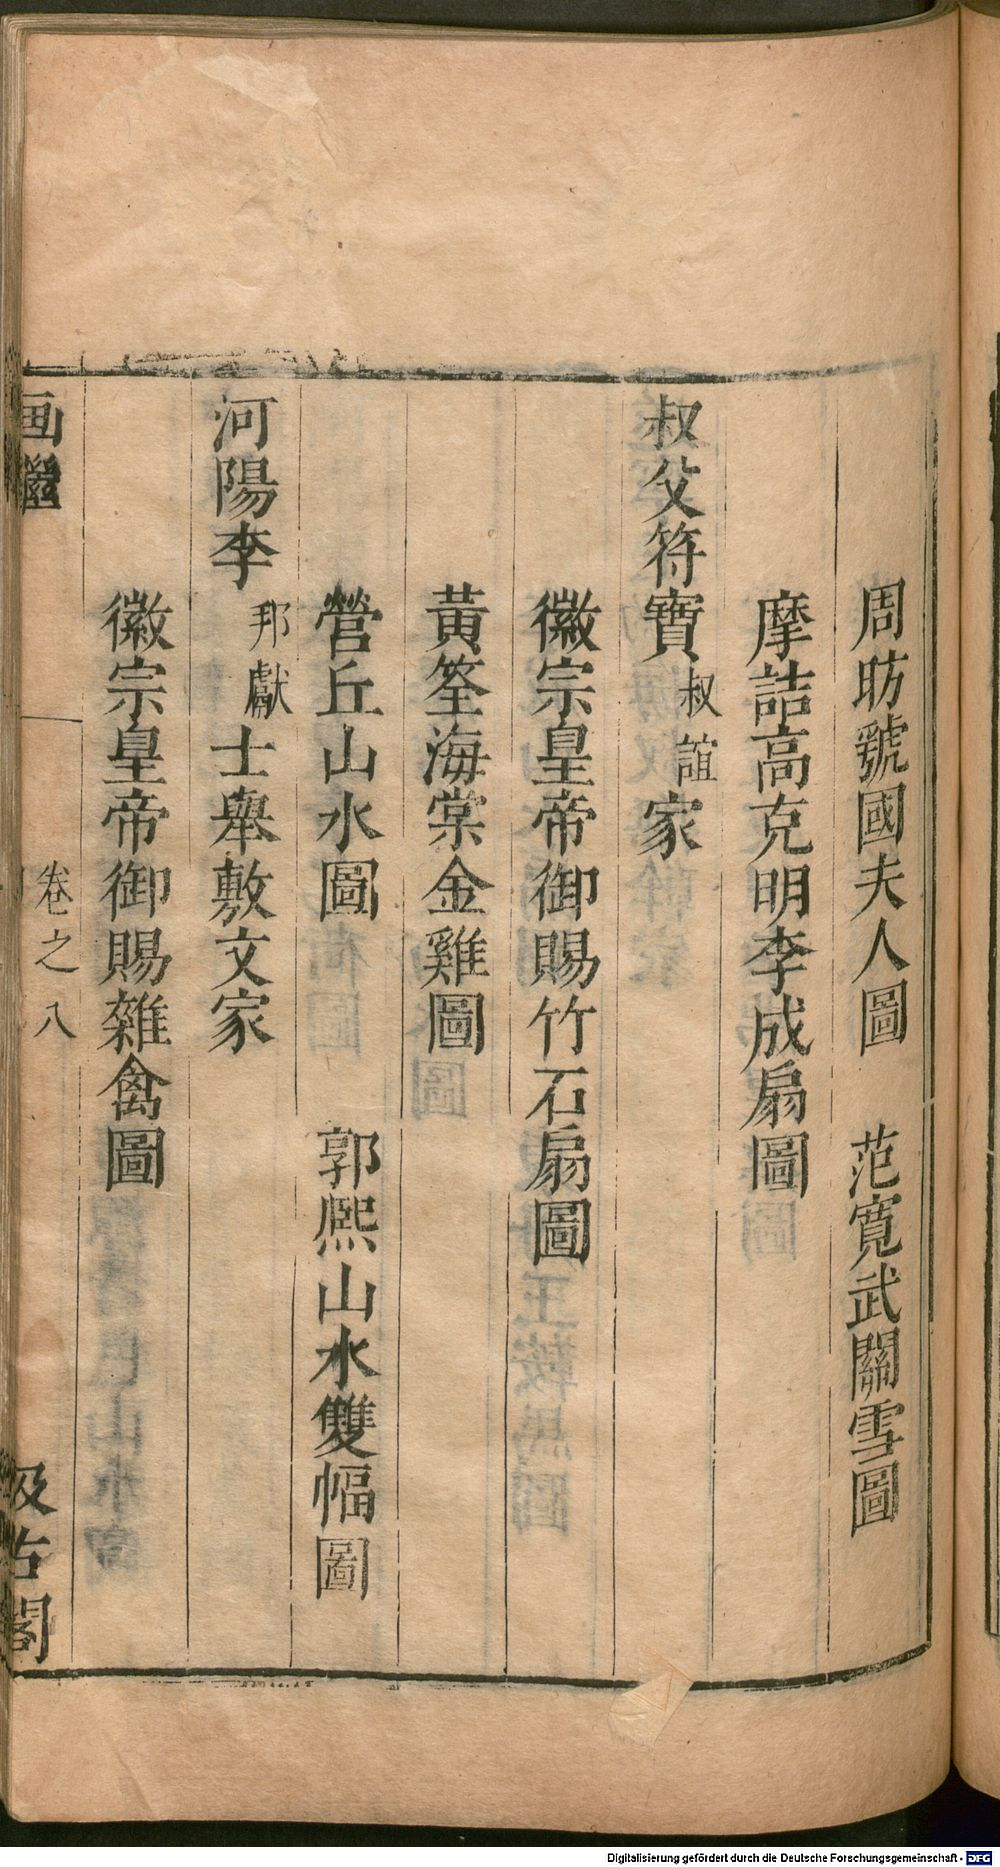 周昉虢國夫人圖　范寬武關雪圖
摩詰高克明李成扇圖
叔父符寶叔誼家
徽宗皇帝御賜竹石扇圖
黃筌海棠金雞圖
營丘山水圖　郭熙山水雙幅圖
河陽李邦獻士舉敷文家
徽宗皇帝御賜雜禽圖
画繼　卷之八　汲古閣
Digitalisierung gefördert durch die Deutsche Forschungsgemeinschaft - DFG